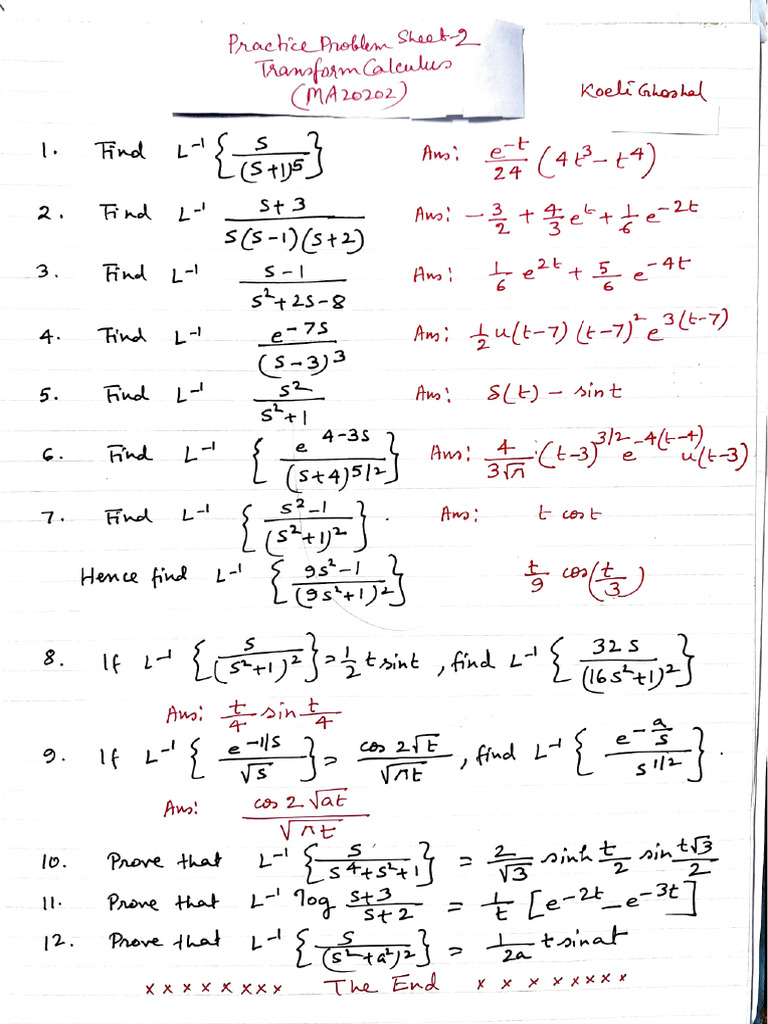 Practice Problem Sheet-2
Transform Calculus
(MA20202)
Koeli Ghoshal
1. Find L⁻¹ { s / (s+1)⁵ } Ans: e^{-t}/24 (4t³ - t⁴)
2. Find L⁻¹ s+3 / s(s-1)(s+2) Ans: -3/2 + 4/3 e^t + 1/6 e^{-2t}
3. Find L⁻¹ s-1 / s²+2s-8 Ans: 1/6 e^{2t} + 5/6 e^{-4t}
4. Find L⁻¹ e^{-7s} / (s-3)³ Ans: 1/2 u(t-7) (t-7)² e^{3(t-7)}
5. Find L⁻¹ s² / s²+1 Ans: δ(t) - sint
6. Find L⁻¹ { e^{4-3s} / (s+4)^{5/2} } Ans: 4/3√π · (t-3)^{3/2} e^{-4(t-4)} u(t-3)
7. Find L⁻¹ { s²-1 / (s²+1)² }. Ans: t cost
Hence find L⁻¹ { 9s²-1 / (9s²+1)² } t/9 cos(t/3)
8. If L⁻¹ { s / (s²+1)² } = 1/2 t sint, find L⁻¹ { 32s / (16s²+1)² }
Ans: t/4 sin t/4
9. If L⁻¹ { e^{-1/s} / √s } = cos 2√t / √πt, find L⁻¹ { e^{-a/s} / s^{1/2} }.
Ans: cos 2√at / √πt
10. Prove that L⁻¹ { s / s⁴+s²+1 } = 2/√3 sinh t/2 sin t√3/2
11. Prove that L⁻¹ log s+3 / s+2 = 1/t [e^{-2t} - e^{-3t}]
12. Prove that L⁻¹ { s / (s²+a²)² } = 1/2a t sinat
x x x x x x x x The End x x x x x x x x